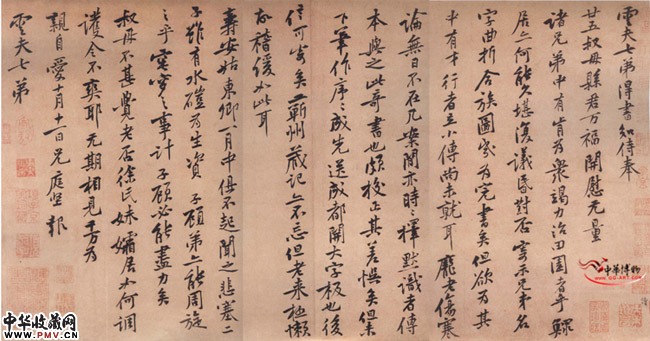 雲夫七弟得書知侍奉
廿五叔母縣君万福開慰无量
諸兄弟中有肯為衆竭力治田園者乎鰥
居亦何能久堪復議昏對否寄示兄弟名
字曲折合族圖家為完書矣但欲為其
中有才行者立小傳尚未就耳龐老傷寒
論無日不在几案間亦時時擇默識者傳
本與之此奇書也頗校正其差悮矣但未
下筆作序序成先送成都開大字板也後
信可寄矣蘄州藏記亦不忘但老來極懶
故稽緩如此耳
壽安姑東卿一月中俱不起聞之悲塞二
子雖有水磑為生資子顧弟亦能周旋
之乎窀穸之事計子顧必能盡力矣
叔母不甚覺老否徐氏妹孀居如何調
護令不爽耶无期相見千万為
親自愛十月十一日兄庭堅報
雲夫七弟
中華博物
中华收藏网
www.PMV.CN